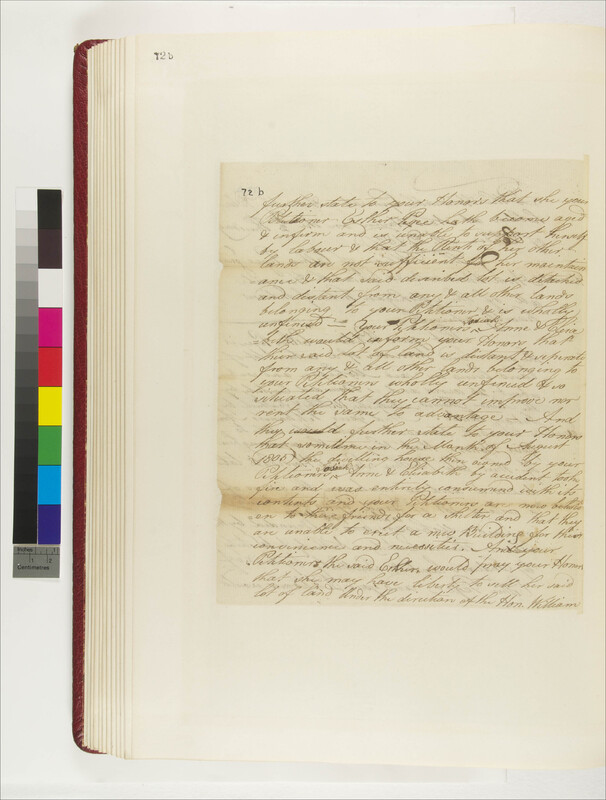 72b
72 b
further state to your Honors that she your
Petitioner Esther hath become aged
& infirm and is unable to support herself
by labour & that the Rent of her other
lands are not sufficient for her mainten
ance & that said described lot is detached
and distant from any & all other lands
belonging to your Petitioner & is wholly
unfenced — Your Petitioners Anne & Eliza
beth would inform your Honors that
their said lot of land is distant & seperate
from any & all other lands belonging to
your Petitioners wholly unfenced & so
situated that they cannot improve nor
rent the same to advantage — And
they would further state to your Honors
that sometime in the Month of August
1806 the dwelling house then owned by your
Petitioners Anne & Elizabeth by accident took
fire and was entirely consumed with its
contents and your Petitioners are now
en to their friends for a shelter and that they
are unable to erect a new Building for their
convenience and necessities. — And your
Petitioners the said Esther would pray your Honors
that she may have liberty to sell her said
lot of land under the direction of the Hon. William
Inches
Centimetres